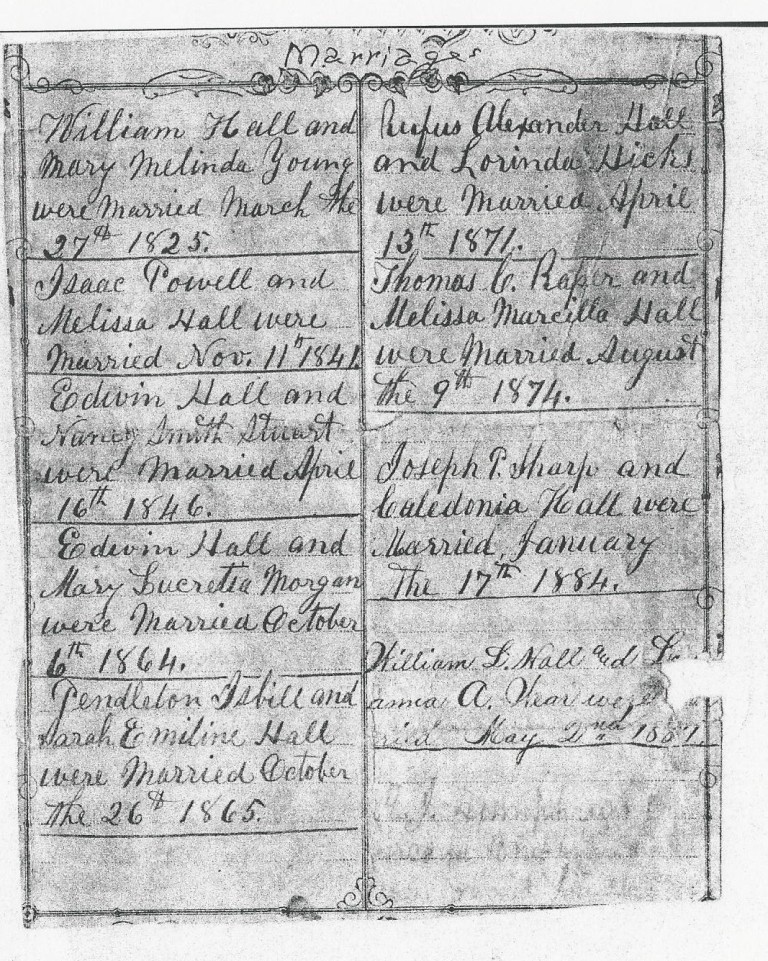 Marriages
William Hall and
Mary Melinda Young
were Married March the
27th 1825.
Isaac Powell and
Melissa Hall were
Married Nov. 11th 1841.
Edwin Hall and
Nancy Smith Stuart
were Married April
16th 1846.
Edwin Hall and
Mary Lucretia Morgan
were Married October
6th 1864.
Pendleton Isbill and
Sarah Emiline Hall
were Married October
the 26th 1865.
Rufus Alexander Hall
and Lorinda Hicks
were Married April
13th 1871.
Thomas C. Raper and
Melissa Marcilla Hall
were Married August
the 9th 1874.
Joseph P. Sharp and
Caledonia Hall were
Married January
the 17th 1884.
William L. Hall and
anna A. were
ried May 2nd